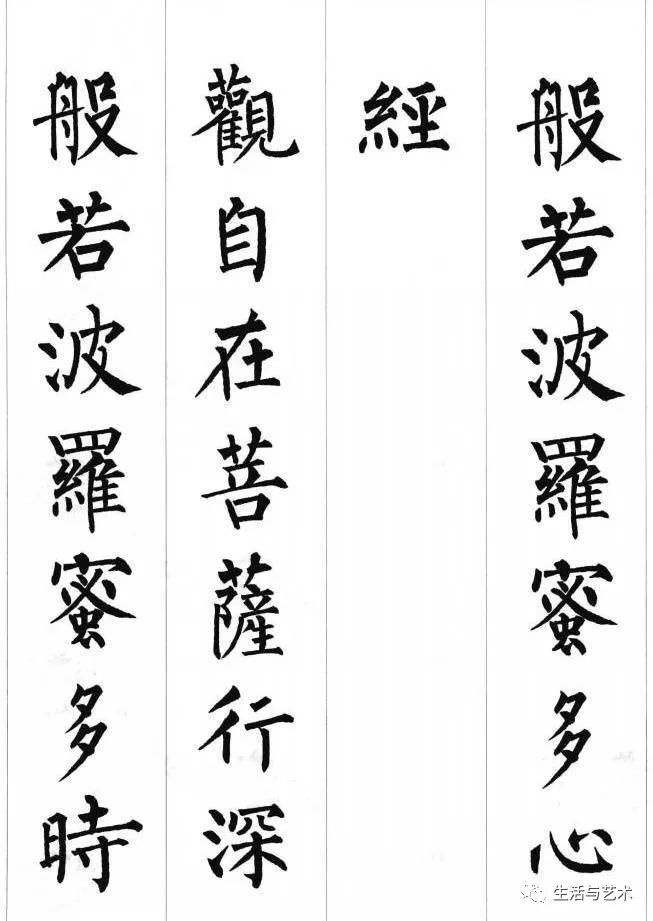 般若波羅蜜多心
經
觀自在菩薩行深
般若波羅蜜多時
生活与艺术